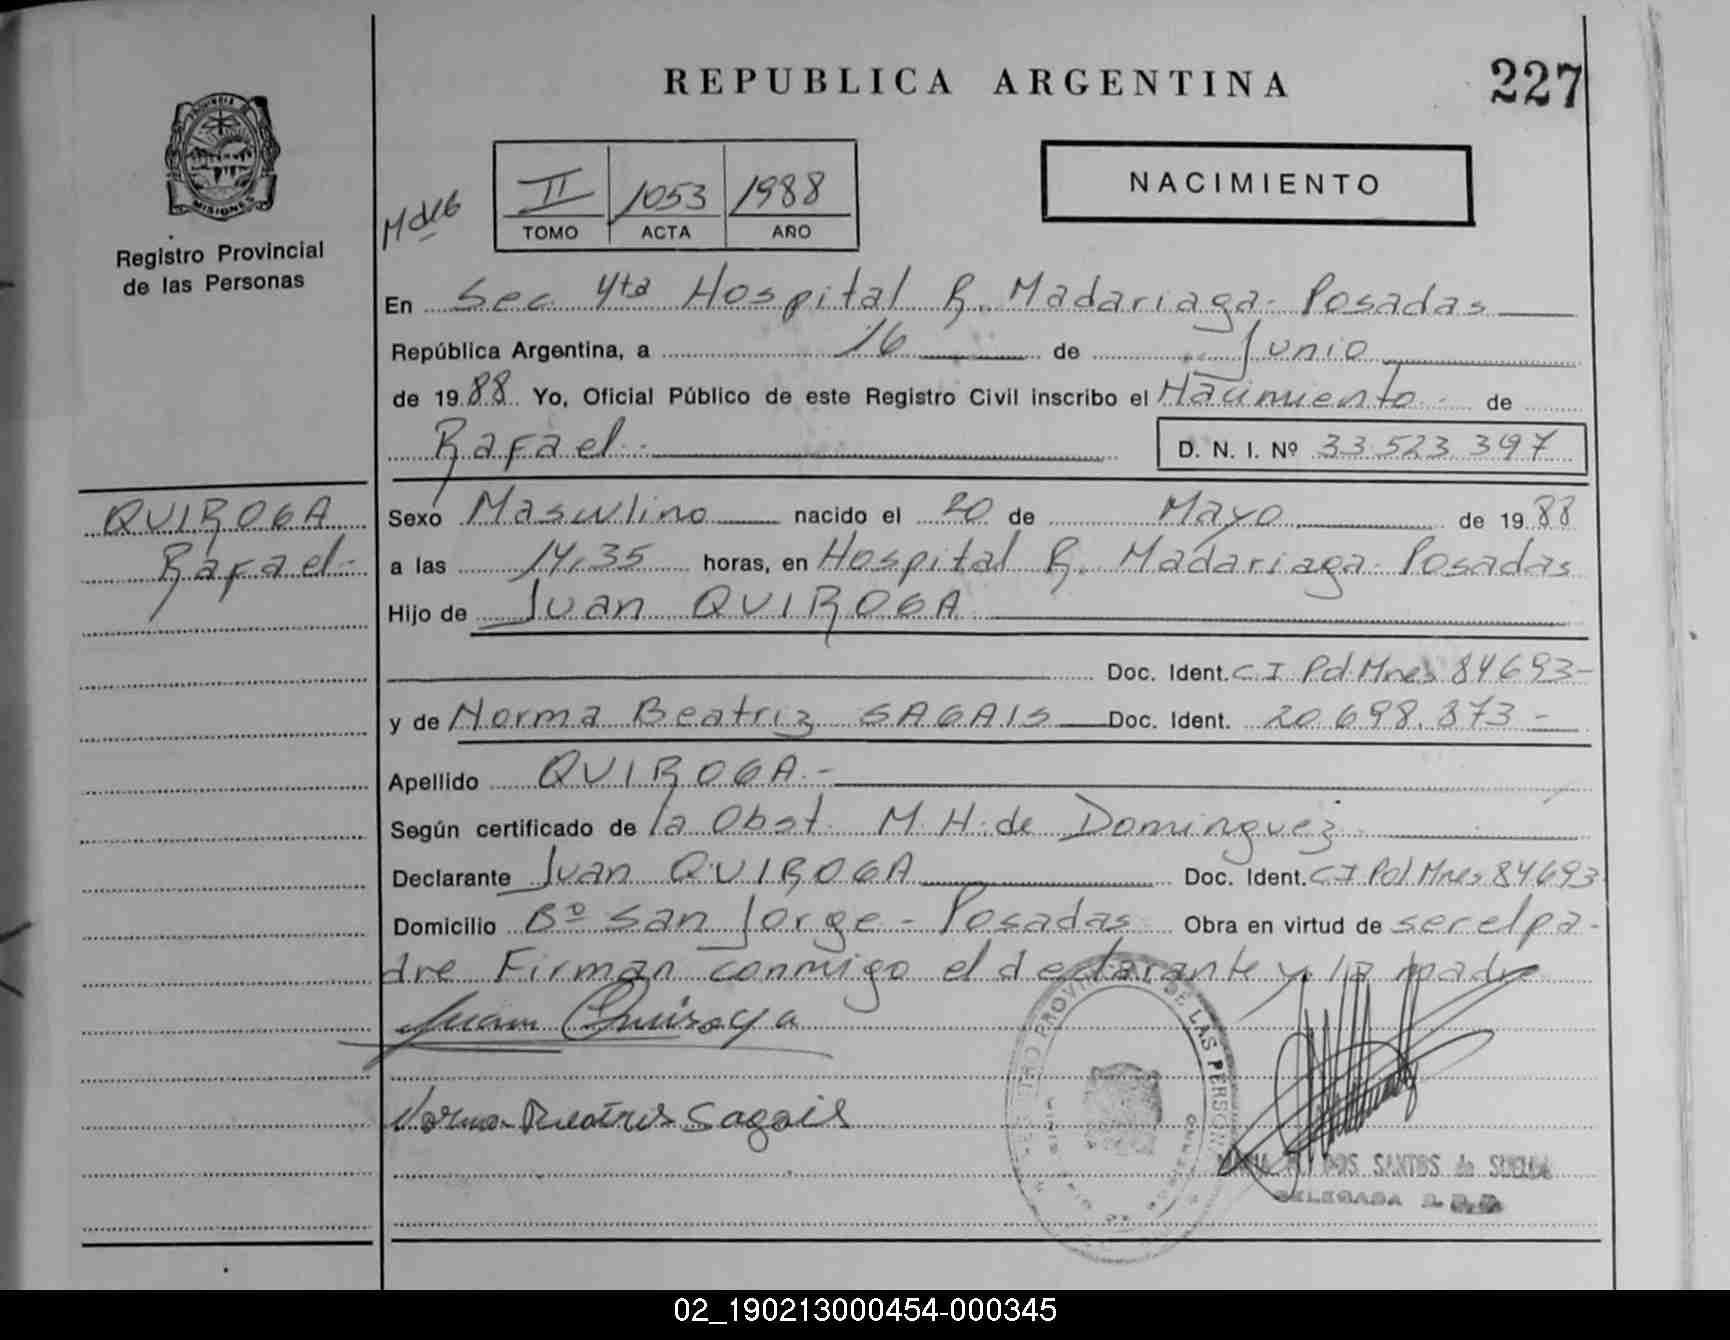 REPUBLICA ARGENTINA
227
PROVINCIA DE
MISIONES
Registro Provincial
de las Personas
II 1053 1988
TOMO ACTA AÑO
NACIMIENTO
En Sec 4ta Hospital R. Madariaga - Posadas
República Argentina, a 16 de Junio
de 1988 Yo, Oficial Público de este Registro Civil inscribo el Nacimiento de
Rafael - D. N. I. Nº 33.523.397
QUIROGA
Rafael -
Sexo Masculino nacido el 20 de Mayo de 1988
a las 14,35 horas, en Hospital R. Madariaga - Posadas
Hijo de Juan QUIROGA
Doc. Ident. C I Pol. Mnes 84693-
y de Norma Beatriz SAGAIS Doc. Ident. 20.698.873 -
Apellido QUIROGA -
Según certificado de la Obst. M. H. de Dominguez
Declarante Juan QUIROGA Doc. Ident. C I Pol Mnes 84693
Domicilio Bº San Jorge - Posadas Obra en virtud de ser el pa-
dre Firman conmigo el declarante y la madre
Juan Quiroga
Norma Beatris Sagais
REGISTRO PROVINCIAL DE LAS PERSONAS
DOS SANTOS de
DELEGADA
02_190213000454-000345